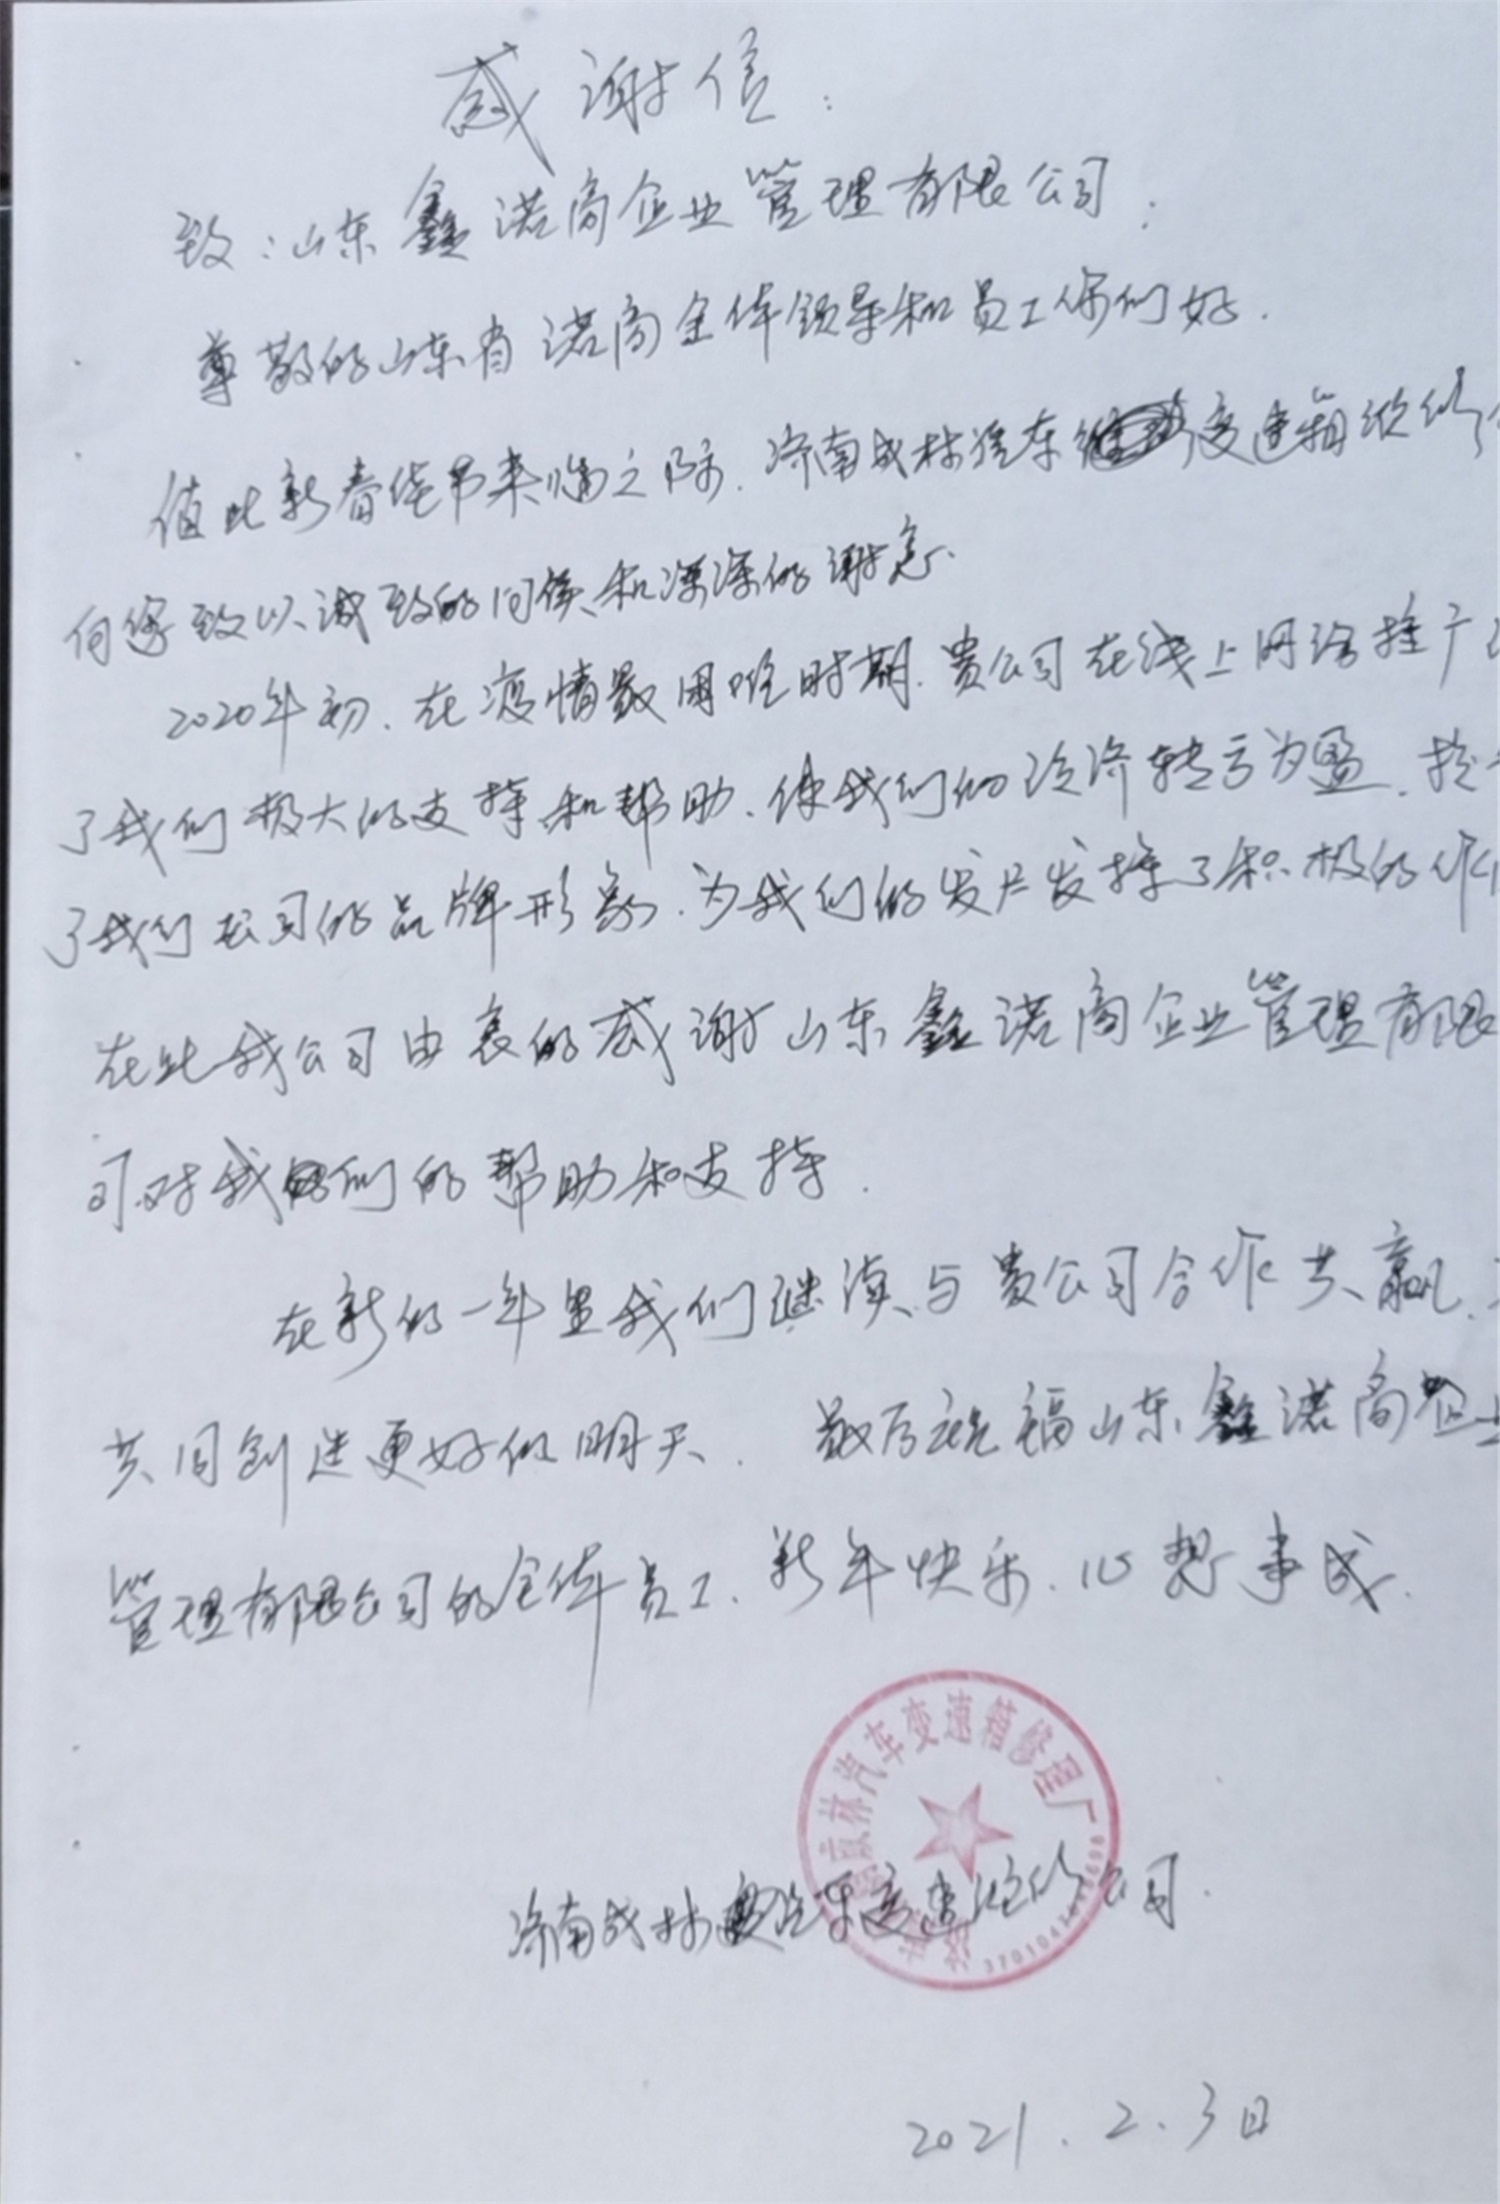 感谢信:
致:山东鑫诺商企业管理有限公司:
尊敬的山东省诺商全体领导和员工你们好.
值此新春佳节来临之际.济南成林汽车变速箱
向您致以诚致的问候和深深的谢意.
2020年初.在疫情最困难时期.贵公司在线上网络推广
了我们极大的支持和帮助.使我们的经济转亏为盈.
了我们公司的品牌形象.为我们的发展发挥了积极的作
在此我公司由衷的感谢山东鑫诺商企业管理有限
司对我们的帮助和支持.
在新的一年里我们继续与贵公司合作共赢.
共同创造更好的明天. 最后祝福山东鑫诺商企业
管理有限公司的全体员工.新年快乐.心想事成.
林汽车变速箱修理厂
济南成林汽车变速箱维修公司.
2021.2.3日